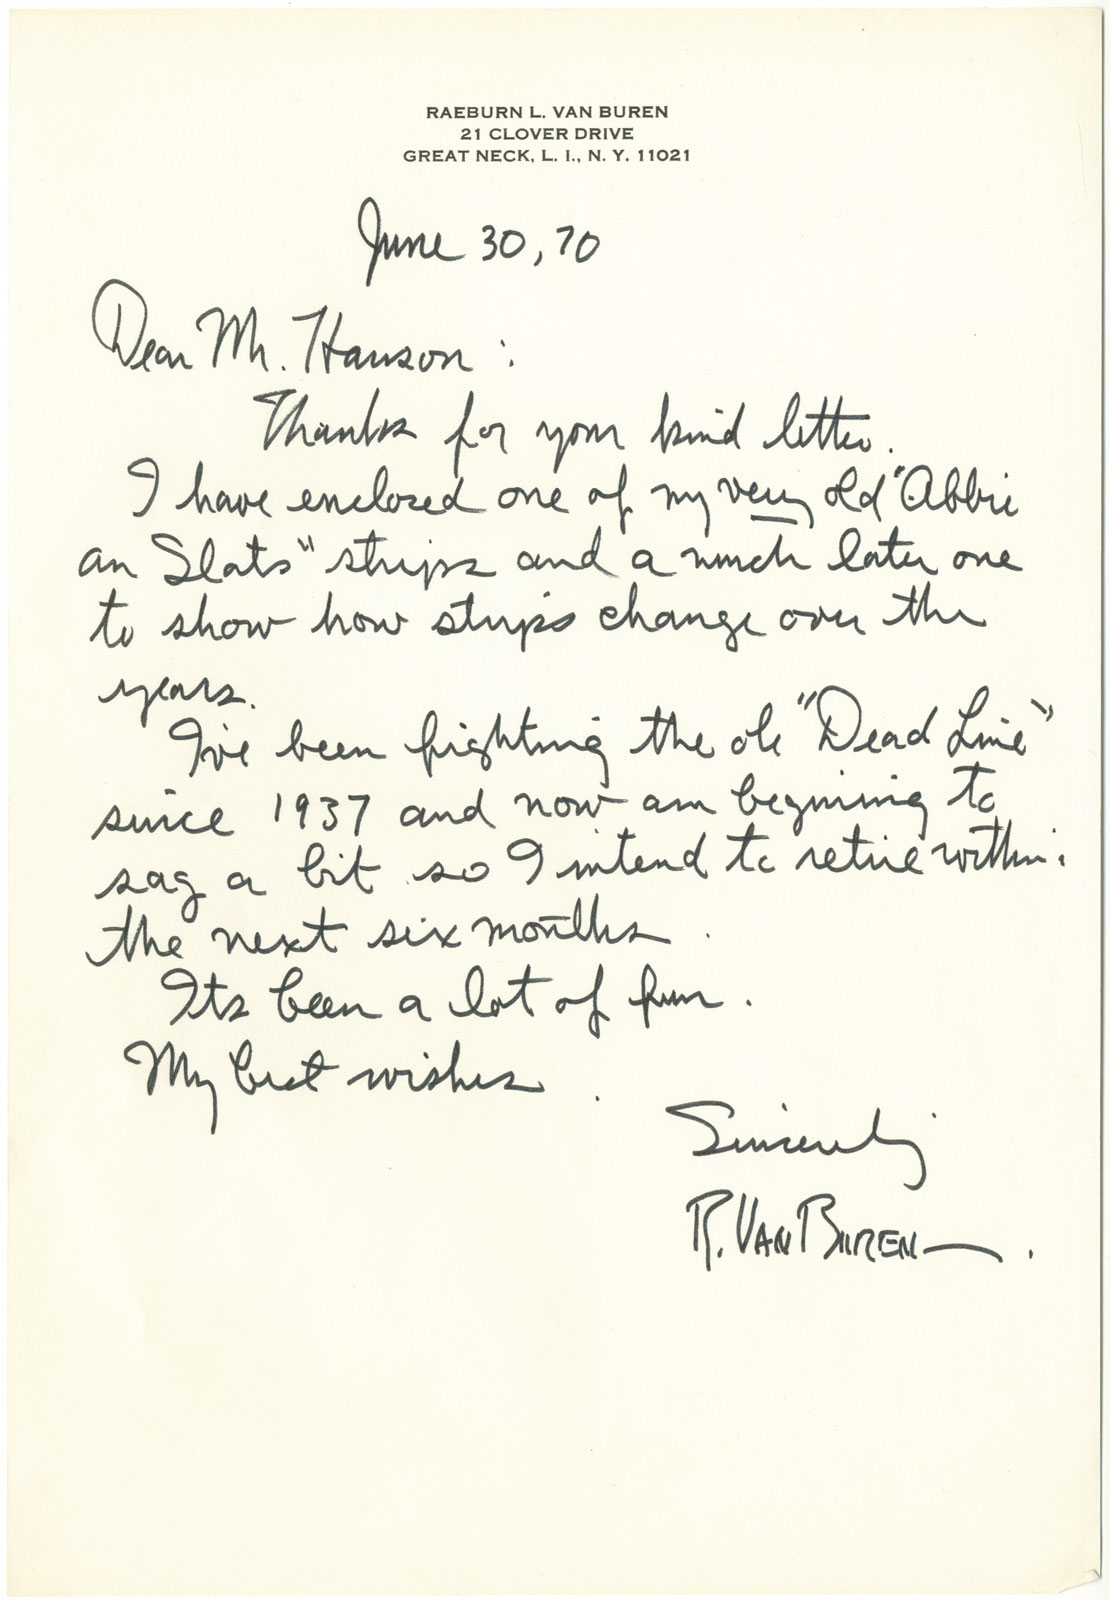 RAEBURN L. VAN BUREN
21 CLOVER DRIVE
GREAT NECK, L. I., N. Y. 11021
June 30, 70
Dear Mr. Hanson:
Thanks for your kind letter.
I have enclosed one of my very old "Abbie
an Slats" strips and a much later one
to show how strips change over the
years.
I've been fighting the ole "Dead Line"
since 1937 and now am begining to
sag a bit so I intend to retire within
the next six months.
Its been a lot of fun.
My best wishes.
Sincerely
R. VAN BUREN.